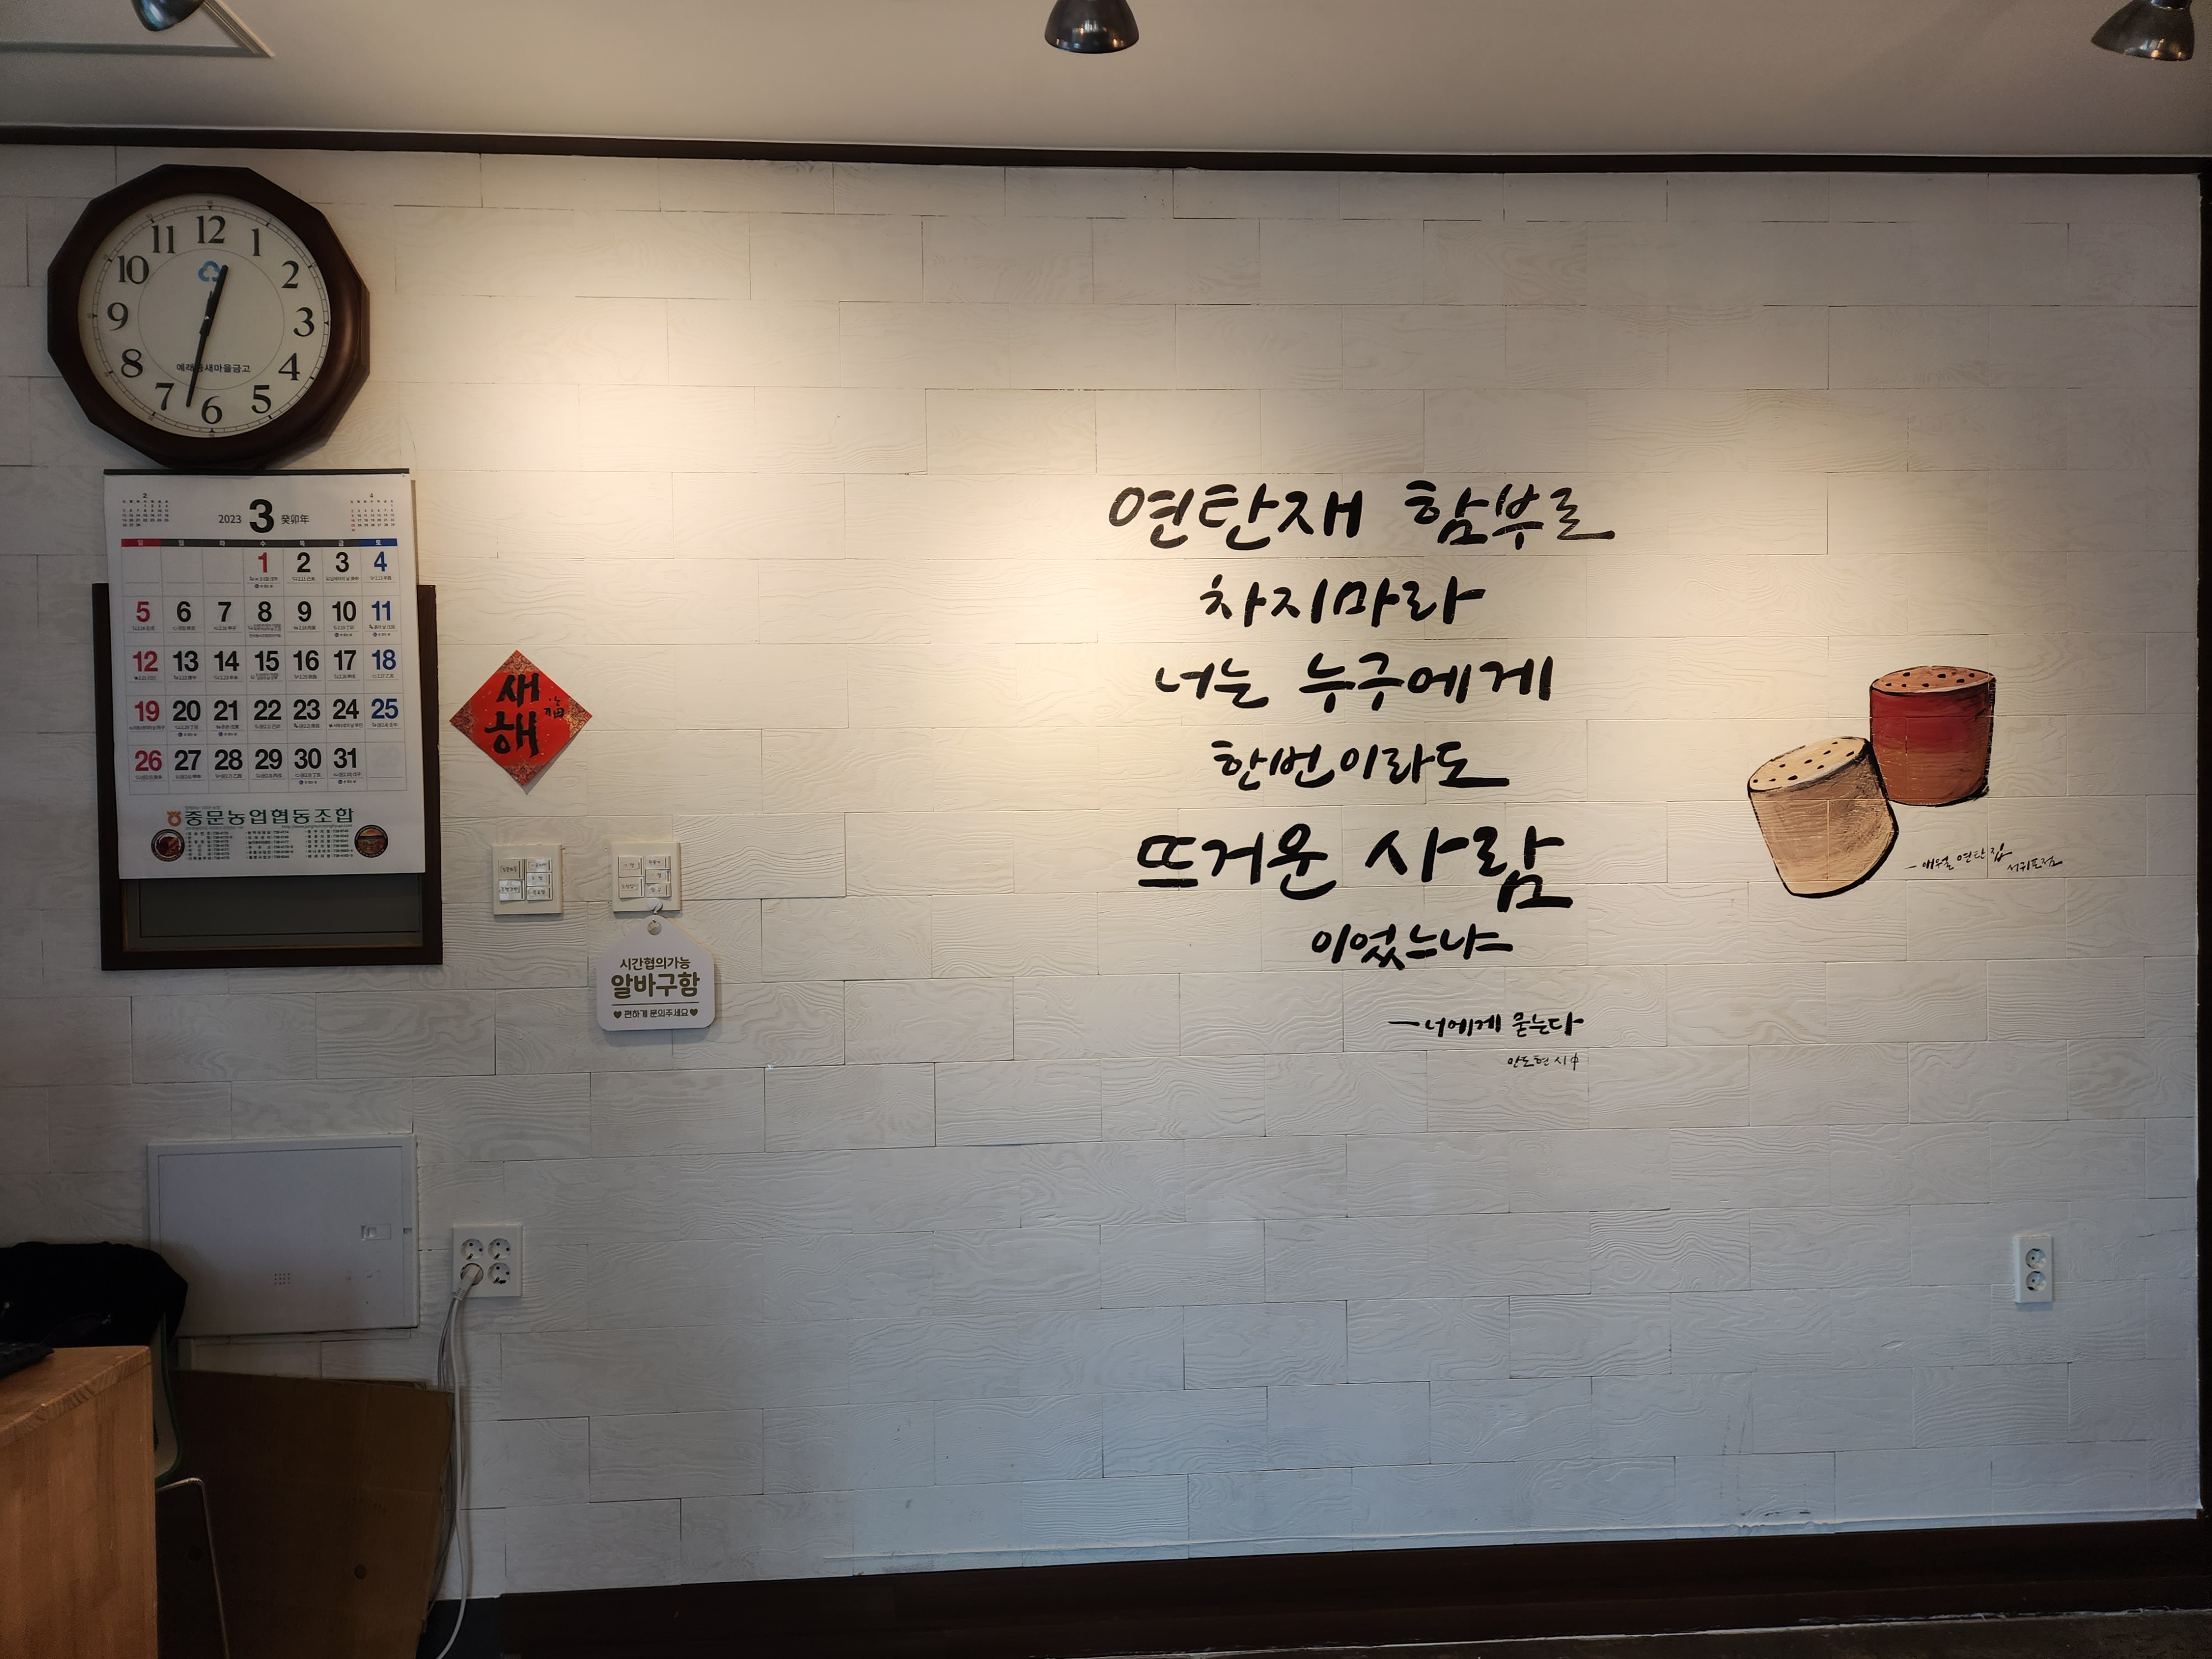 12
1
2
3
4
5
6
7
8
9
10
11
새마을금고
2
4
2023 3 癸卯年
일 월 화 수 목 금 토
1 2 3 4
5 6 7 8 9 10 11
12 13 14 15 16 17 18
19 20 21 22 23 24 25
26 27 28 29 30 31
중문농업협동조합
새
해
福
시간협의가능
알바구함
♥편하게 문의주세요♥
연탄재 함부로
차지마라
너는 누구에게
한번이라도
뜨거운 사람
이었느냐
ー너에게 묻는다
안도현 시中
ー애월 연탄집
서귀포점